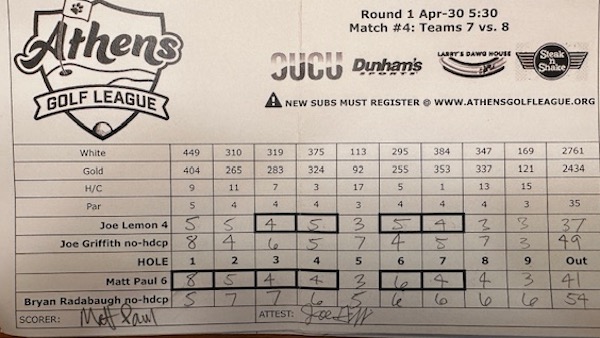 Athens
GOLF LEAGUE
Round 1 Apr-30 5:30
Match #4: Teams 7 vs. 8
OUCU Dunham's SPORTS LARRY'S DAWG HOUSE Steak n Shake
NEW SUBS MUST REGISTER @ WWW.ATHENSGOLFLEAGUE.ORG
White 449 310 319 375 113 295 384 347 169 2761
Gold 404 265 283 324 92 255 353 337 121 2434
H/C 9 11 7 3 17 5 1 13 15
Par 5 4 4 4 3 4 4 4 3 35
Joe Lemon 4 5 5 4 5 3 5 4 3 3 37
Joe Griffith no-hdcp 8 4 6 5 7 4 5 7 3 49
HOLE 1 2 3 4 5 6 7 8 9 Out
Matt Paul 6 8 5 4 4 3 6 4 4 3 41
Bryan Radabaugh no-hdcp 5 7 7 6 5 6 6 6 6 54
SCORER: Matt Paul ATTEST: Joe